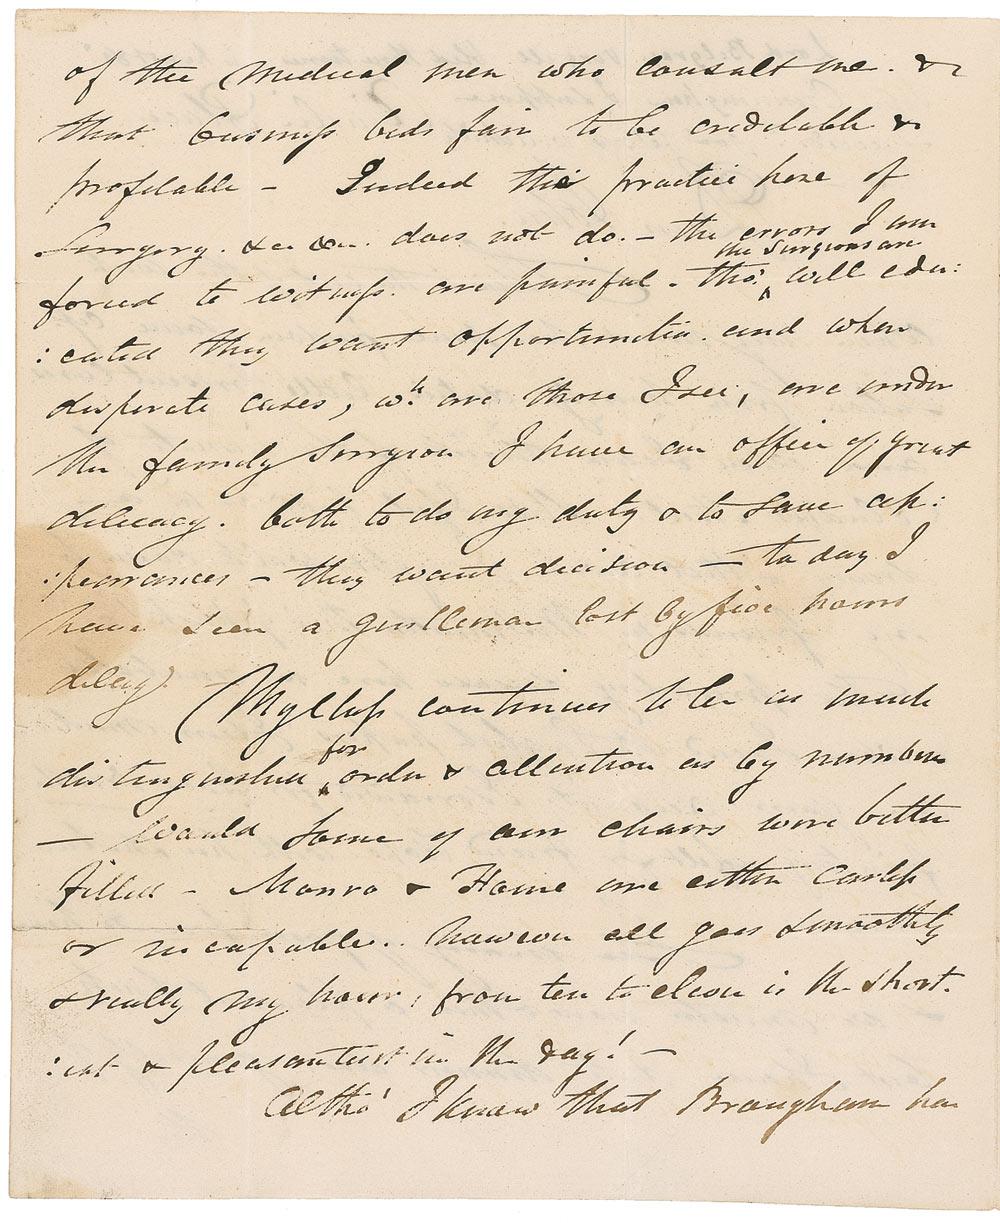 of the Medical men who consult me. &
that business bids fair to be creditable &
profitable – Indeed the practice here of
Surgery. &c &c. does not do. – the errors I am
forced to witness. are painful. tho' the Surgeons are well edu:
:cated they want opportunities. and when
desperate cases, wh are those I see, are under
the family Surgeon I have an office of great
delicacy. both to do my duty & to save ap:
:pearances – they want decision – to day I
have seen a gentleman lost by five hours
delay).
My Class continues to be as much
distinguished for order & attention as by numbers
– Would some of our chairs were better
filled – Monro & Home are either Careless
or incapable.. however all goes smoothly
& really my hour, from ten to eleven is the short.
:est & pleasantest in the day! –
Altho' I know that Brougham has